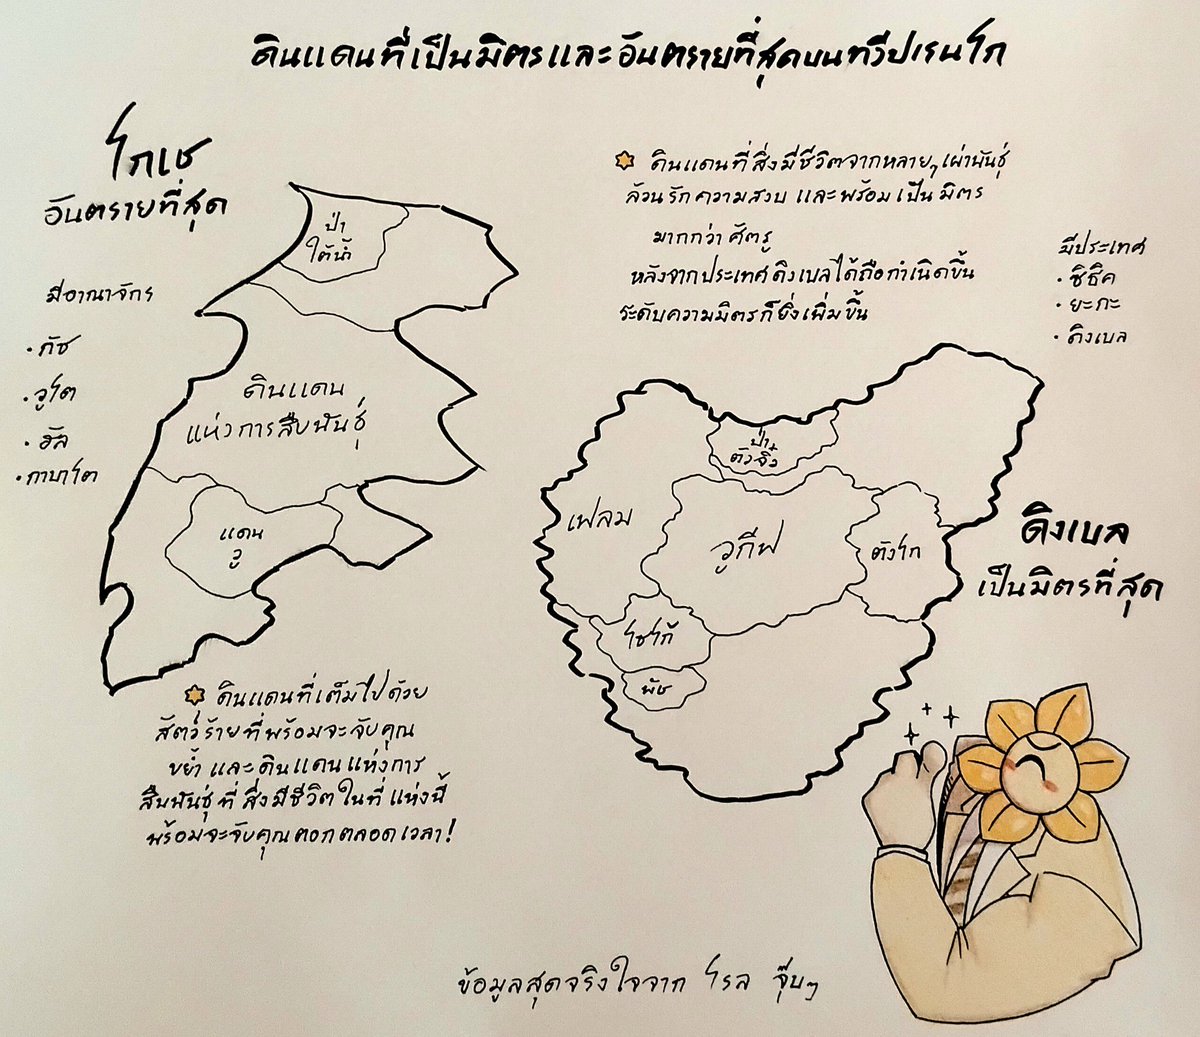 ดินแดนที่เป็นมิตรและอันตรายที่สุดบนทวีปเรนโก
โกเช
อันตรายที่สุด
มีอาณาจักร
• กัซ
• วูโต
• ฮัล
• กาบาโต
ป่า
ใต้น้ำ
ดินแดน
แห่งการสืบพันธุ์
แดน
วู
ดินแดนที่เต็มไปด้วย
สัตว์ร้ายที่พร้อมจะจับคุณ
ขย้ำ และดินแดนแห่งการ
สืบพันธุ์ที่สิ่งมีชีวิตในที่แห่งนี้
พร้อมจะจับคุณตอกตลอดเวลา!
ดินแดนที่สิ่งมีชีวิตจากหลายๆเผ่าพันธุ์
ล้วนรักความสงบ และพร้อมเป็นมิตร
มากกว่าศัตรู
หลังจากประเทศดิงเบลได้ถือกำเนิดขึ้น
ระดับความมิตรก็ยิ่งเพิ่มขึ้น
มีประเทศ
• ชิธิค
• ยะกะ
• ดิงเบล
ป่า
ตัวจิ๋ว
เฟลม
วูกีฟ
ตังโก
โซโก้
พัช
ดิงเบล
เป็นมิตรที่สุด
ข้อมูลสุดจริงใจจาก โรล จุ๊บๆ